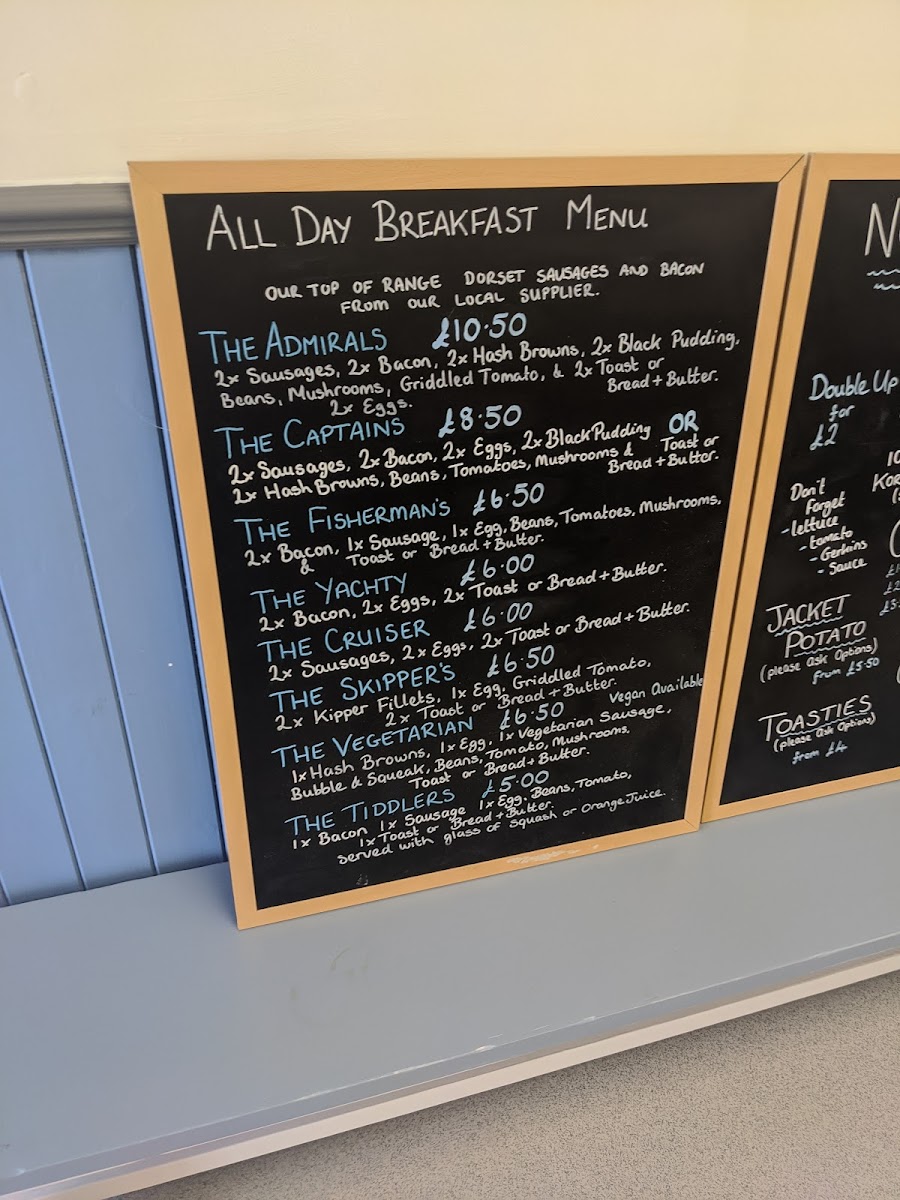 ALL DAY BREAKFAST MENU
OUR TOP OF RANGE DORSET SAUSAGES AND BACON
FROM OUR LOCAL SUPPLIER.
THE ADMIRALS £10.50
2x Sausages, 2x Bacon, 2x Hash Browns, 2x Black Pudding,
Beans, Mushrooms, Griddled Tomato, & 2x Toast or
Bread + Butter.
2x Eggs.
THE CAPTAINS £8.50
2x Sausages, 2x Bacon, 2x Eggs, 2x Black Pudding OR
2x Hash Browns, Beans, Tomatoes, Mushrooms & Toast or
Bread + Butter.
THE FISHERMAN'S £6.50
2x Bacon, 1x Sausage, 1x Egg, Beans, Tomatoes, Mushrooms,
& Toast or Bread + Butter.
THE YACHTY £6.00
2x Bacon, 2x Eggs, 2x Toast or Bread + Butter.
THE CRUISER £6.00
2x Sausages, 2x Eggs, 2x Toast or Bread + Butter.
THE SKIPPER'S £6.50
2x Kipper Fillets, 1x Egg, Griddled Tomato,
2x Toast or Bread + Butter.
THE VEGETARIAN £6.50 Vegan Available
1x Hash Browns, 1x Egg, 1x Vegetarian Sausage,
Bubble & Squeak, Beans, Tomato, Mushrooms,
Toast or Bread + Butter.
THE TIDDLERS £5.00
1x Bacon 1x Sausage 1x Egg. Beans, Tomato,
1x Toast or Bread + Butter.
served with glass of squash or Orange Juice.
Double Up
for
£2
Don't
Forget
- lettuce
- tomato
- Gerkins
- Sauce
JACKET
POTATO
(please ask Options)
from £5.50
TOASTIES
(please ask Options)
from £4